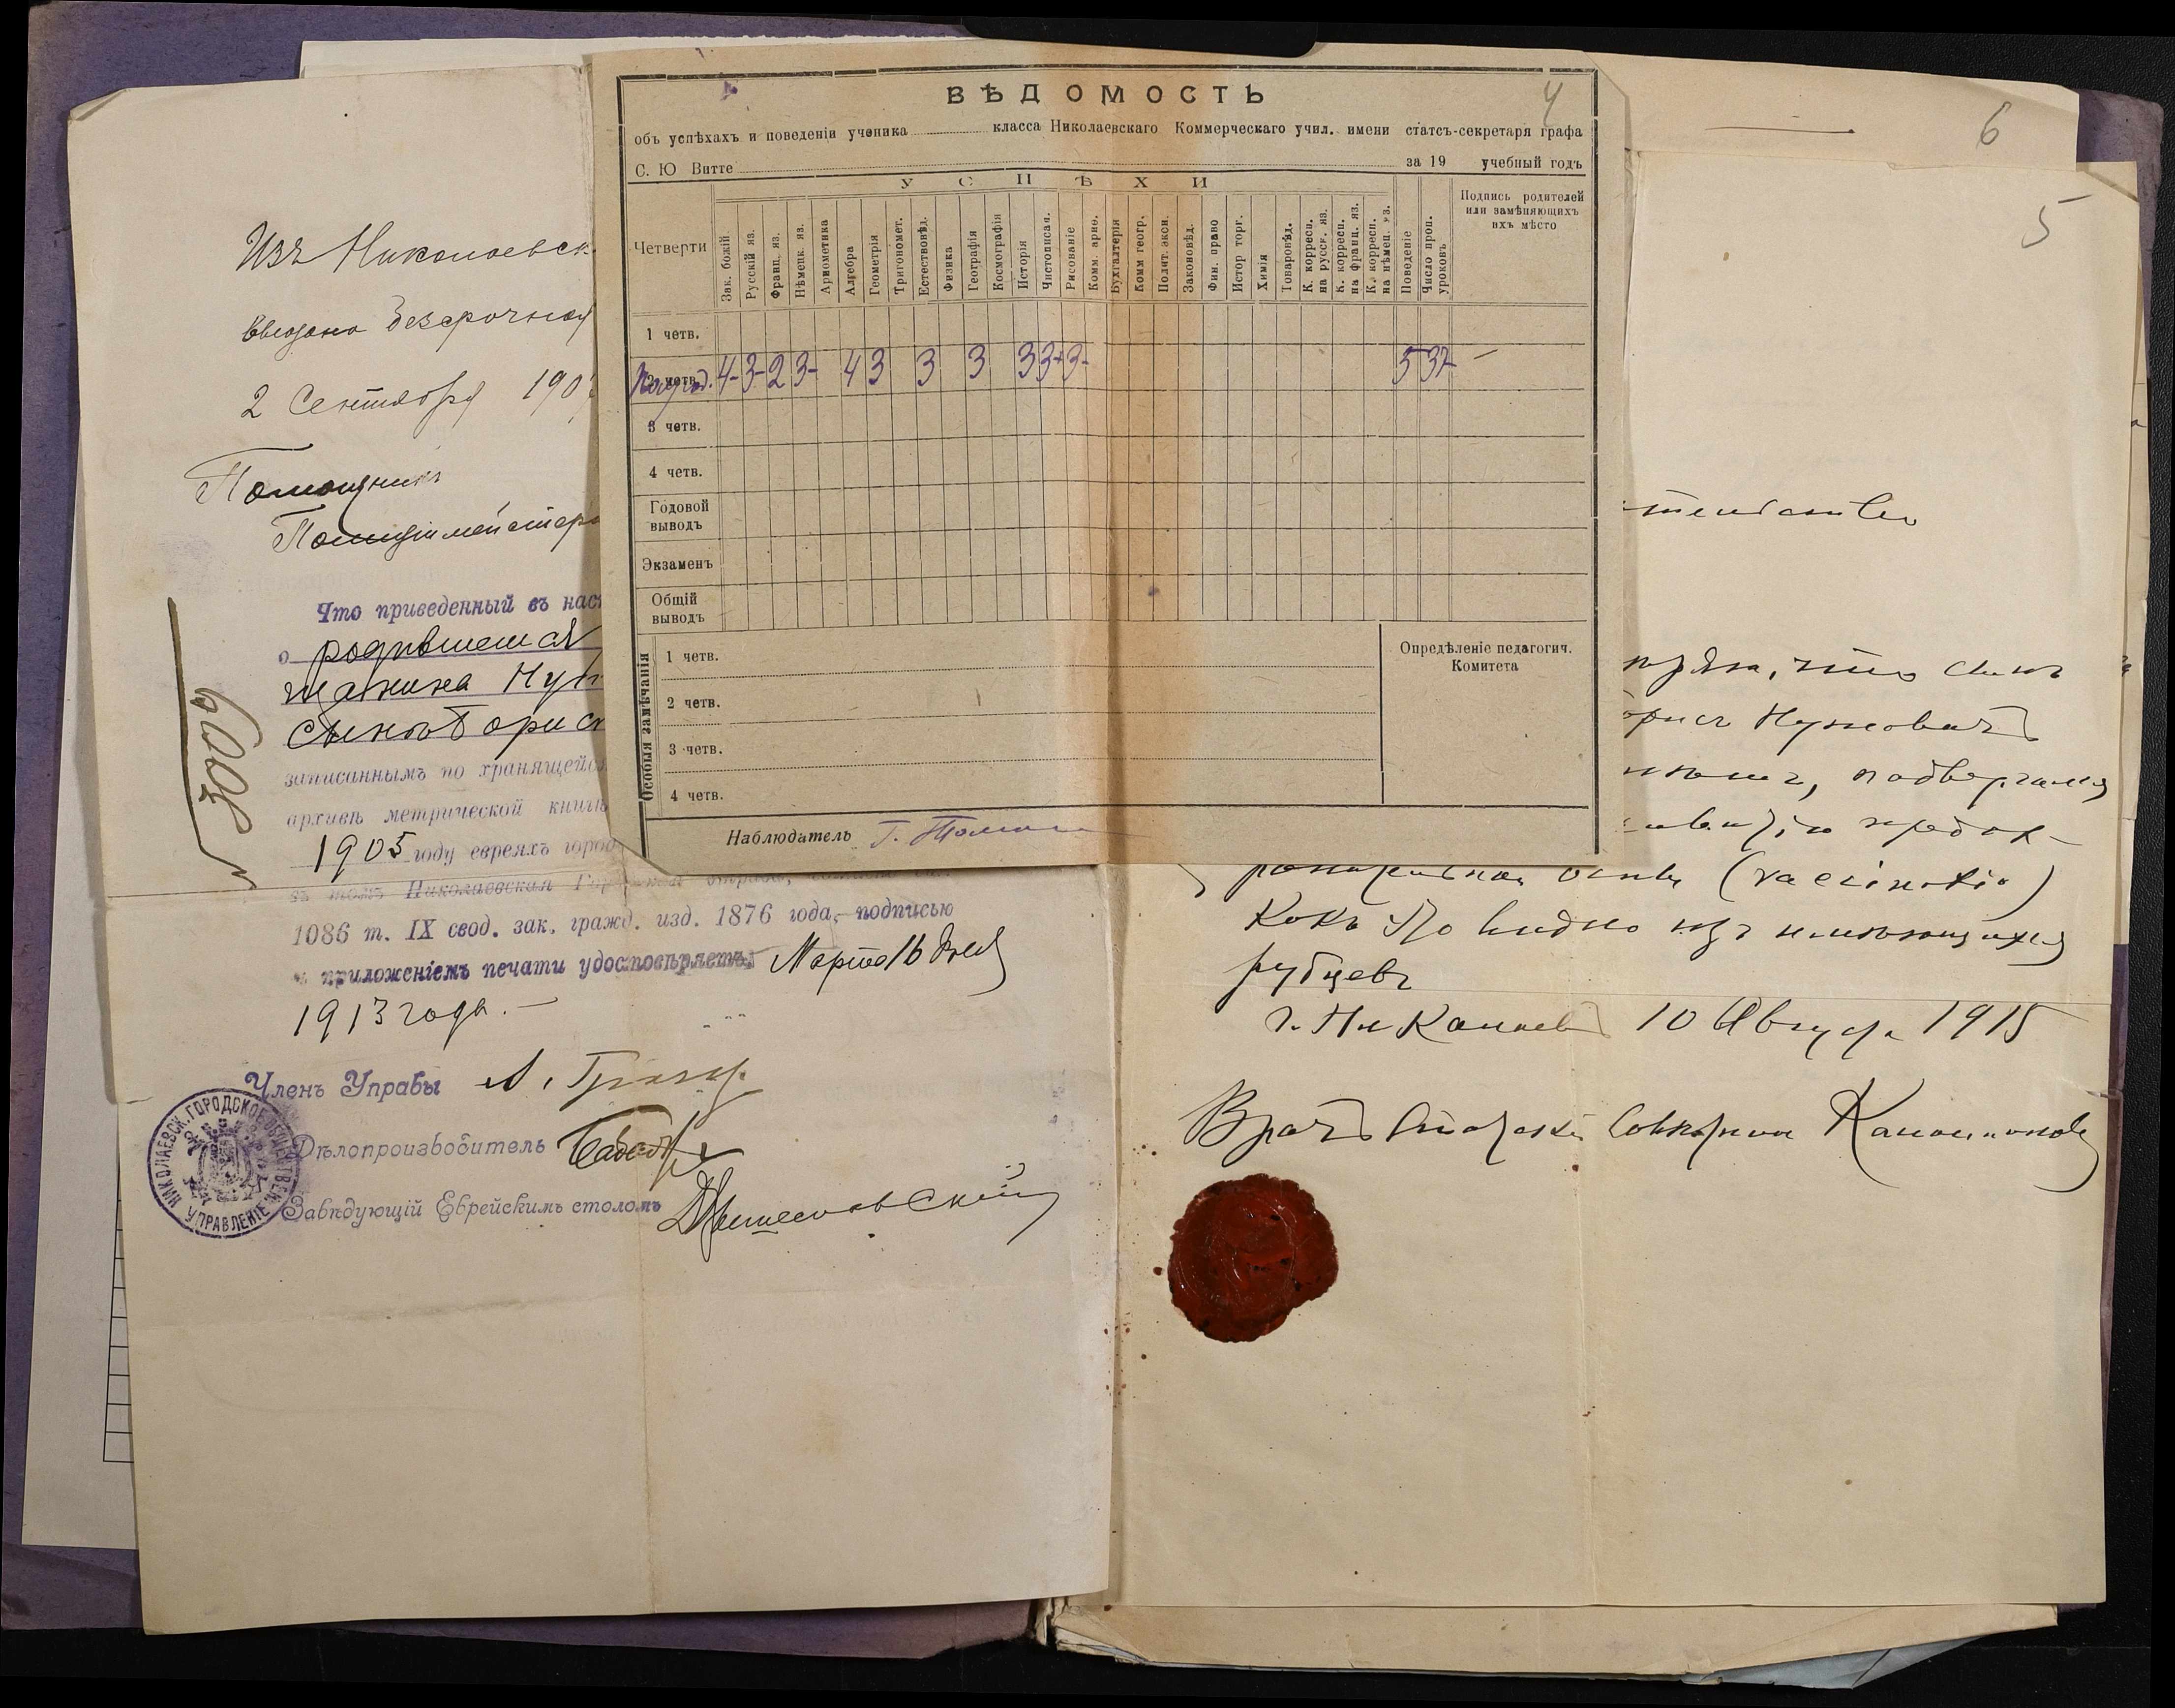 6
5
4
ВѢДОМОСТЬ
объ успѣхахъ и поведеніи ученика класса Николаевскаго Коммерческаго учил. имени статсъ-секретаря графа
С. Ю Витте за 19 учебный годъ
УСПѢХИ
Четверти
Зак. божій
Русскій яз.
Франц. яз.
Нѣмецк. яз.
Ариометика
Алгебра
Геометрія
Тригонометр.
Естествовѣд.
Физика
Географія
Космографія
Исторія
Чистописан.
Рисованіе
Комм. арио.
Бухгалтерія
Комм геогр.
Полит. экон.
Законовѣд.
Фин. право
Истор торг.
Химія
Товаровѣд.
К. корресп. на русск. яз.
К. корресп. на франц. яз.
К. корресп. на нѣмец. яз.
Поведеніе
Число проп. уроковъ
Подпись родителей
или замѣняющихъ
ихъ мѣсто
1 четв.
2 четв. 4- 3- 2 3- 4 3 3 3 3 3+ 3- 5 37 —
3 четв.
4 четв.
Годовой
выводъ
Экзаменъ
Общій
выводъ
Особыя замѣчанія
1 четв.
2 четв.
3 четв.
4 четв.
Опредѣленіе педагогич.
Комитета
Наблюдатель
Изъ Николаевск
безсрочная
2 Сентября 190
Помощникъ
Полиціймейстера
№ 3009
Что приведенный въ нас
о родившемся
щанина Ну
сынъ Борис
записаннымъ по хранящейся
архивѣ метрической книгѣ
1905 году евреяхъ город
въ томъ Николаевская
1086 т. IX свод. зак. гражд. изд. 1876 года, подписью
и приложеніемъ печати удостовѣряетъ. Марта 16 дня
1913 года. —
Членъ Управы
Дѣлопроизводитель
Завѣдующій Еврейскимъ столомъ
НИКОЛАЕВСК. ГОРОДСКОЕ ОБЩЕСТВЕН. УПРАВЛЕНІЕ
что сынъ
орисъ Нухимовичъ
подвергался
предох-
ранительной оспы (vaccinatio)
какъ это видно изъ имѣющихся
рубцевъ
г. Николаевъ 10 Августа 1915
Врачъ Статскій Совѣтникъ